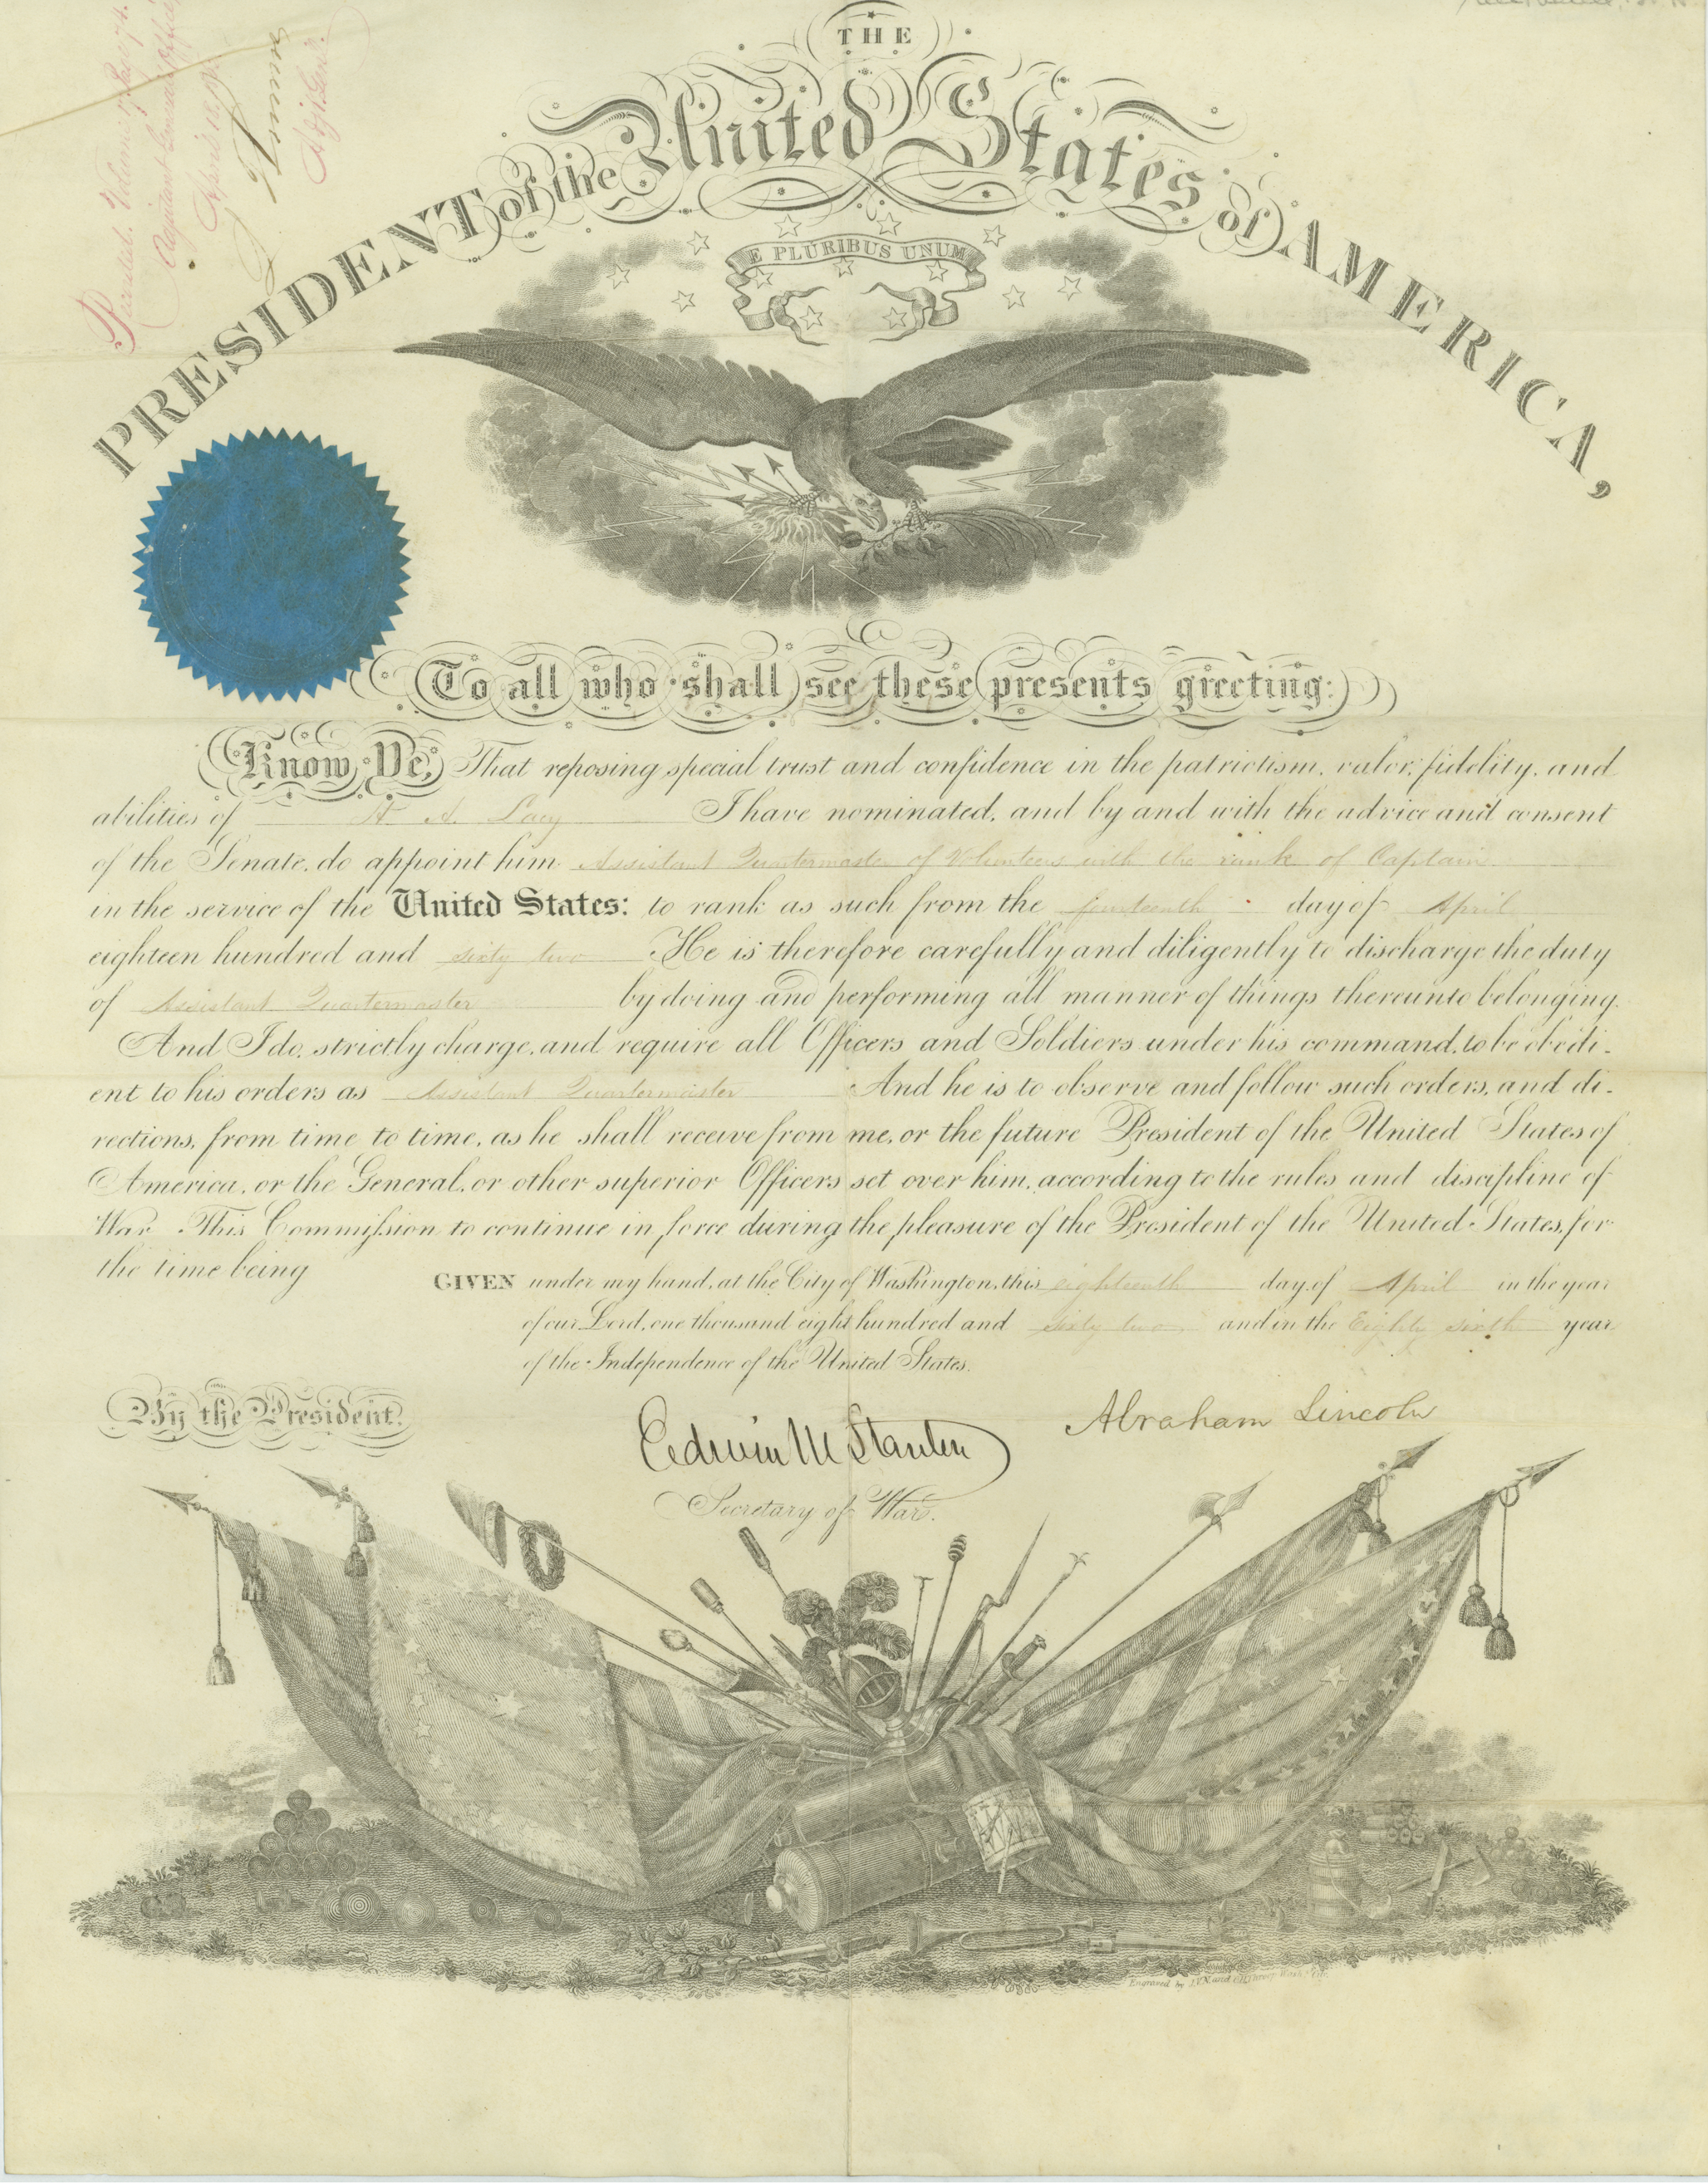 THE
PRESIDENT of the United States of AMERICA,
E PLURIBUS UNUM
Recorded. Volume
Adjutant General's Office
April 18, 1862
L Thomas
Adjt. Genl.
To all who shall see these presents greeting:
Know Ye, That reposing special trust and confidence in the patriotism, valor, fidelity, and
abilities of A. Lacy I have nominated, and by and with the advice and consent
of the Senate, do appoint him Assistant Quartermaster of Volunteers with the rank of Captain
in the service of the United States: to rank as such from the fourteenth day of April
eighteen hundred and sixty two He is therefore carefully and diligently to discharge the duty
of Assistant Quartermaster by doing and performing all manner of things thereunto belonging.
And I do, strictly charge, and require all Officers and Soldiers under his command, to be obedi-
ent to his orders as Assistant Quartermaster And he is to observe and follow such orders, and di-
rections, from time to time, as he shall receive from me, or the future President of the United States of
America, or the General, or other superior Officers set over him, according to the rules and discipline of
War. This Commission to continue in force during the pleasure of the President of the United States, for
the time being
GIVEN under my hand, at the City of Washington, this eighteenth day of April in the year
of our Lord, one thousand eight hundred and sixty two and in the Eighty sixth year
of the Independence of the United States.
By the President.
Abraham Lincoln
Edwin M Stanton
Secretary of War.
Engraved by